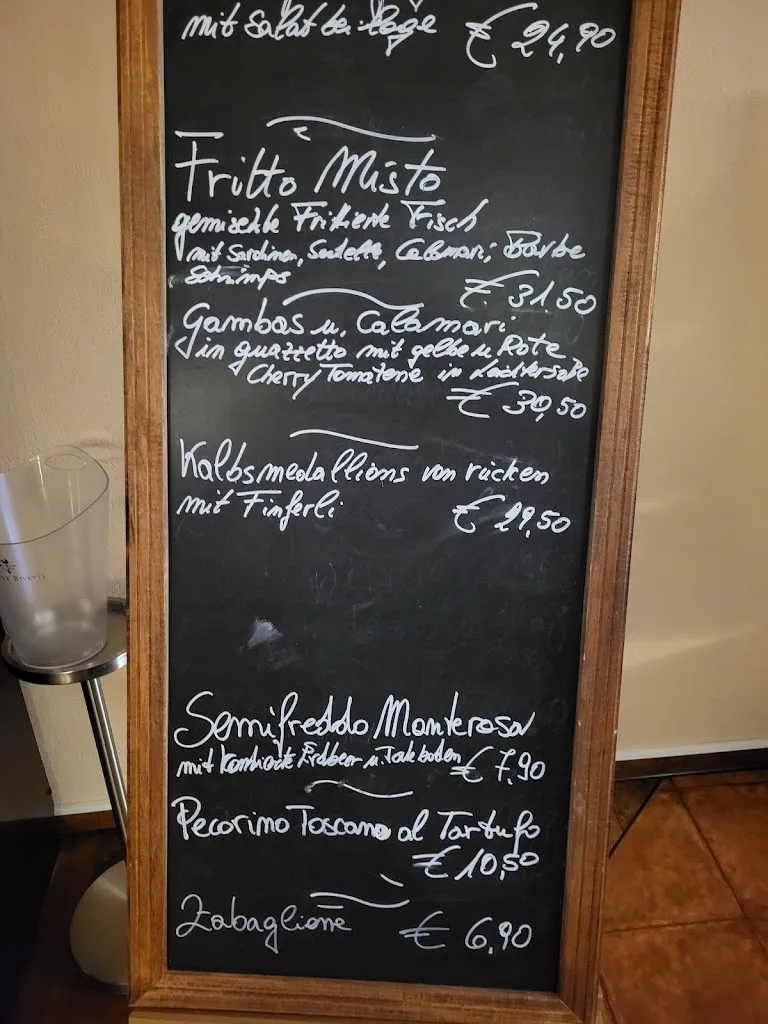 mit Salat beilage € 24,90
Fritto Misto
gemischte Fritierte Fisch
mit Sardinen, Calamari, Barbe
Schrimps € 31,50
Gambas u. Calamari
in guazzetto mit gelbe u Rote
Cherry Tomatene in
€ 30,50
Kalbsmedallions von rücken
mit Finferli € 29,50
Semifreddo Monterosa
mit Erdbeer u € 7,90
Pecorino Toscano al Tartufo
€ 10,50
Zabaglione € 6,90